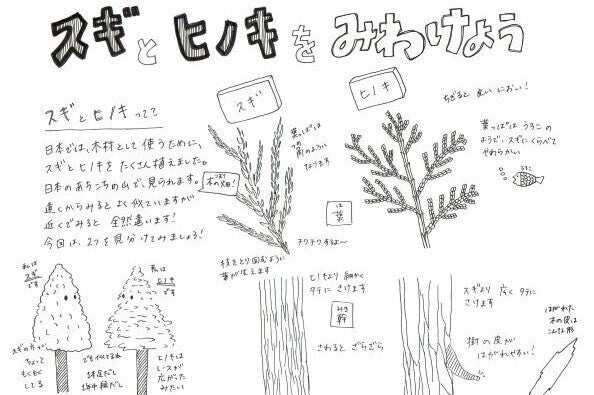 スギとヒノキをみわけよう
スギとヒノキって?
日本では、木材として使うために、
スギとヒノキをたくさん植えました。
日本のあちこちの山で、見られます。
つまり
木の畑!
遠くからみるとよく似ていますが
近くでみると全然違います!
今回は、2つを見分けてみましょう!
スギ
葉っぱは
つの
角のように
なります
チクチクするよ〜
枝をとり囲むように
葉が生えます
は
葉
ヒノキ
ちぎると良いにおい!
葉っぱはうろこの
ようで、スギにくらべて
やわらかい
私は
スギ
です
スギの方が
ちょっと
もくもく
してる
私は
ヒノキ
です
でも似てるね
ヒノキは
レースが
広がった
みたい
ヒノキより細かく
タテにさけます
みき
幹
さわるとざらざら
スギより広くタテに
さけます
樹の皮が
はがれやすい!
はがれた
木の皮は
こんな形